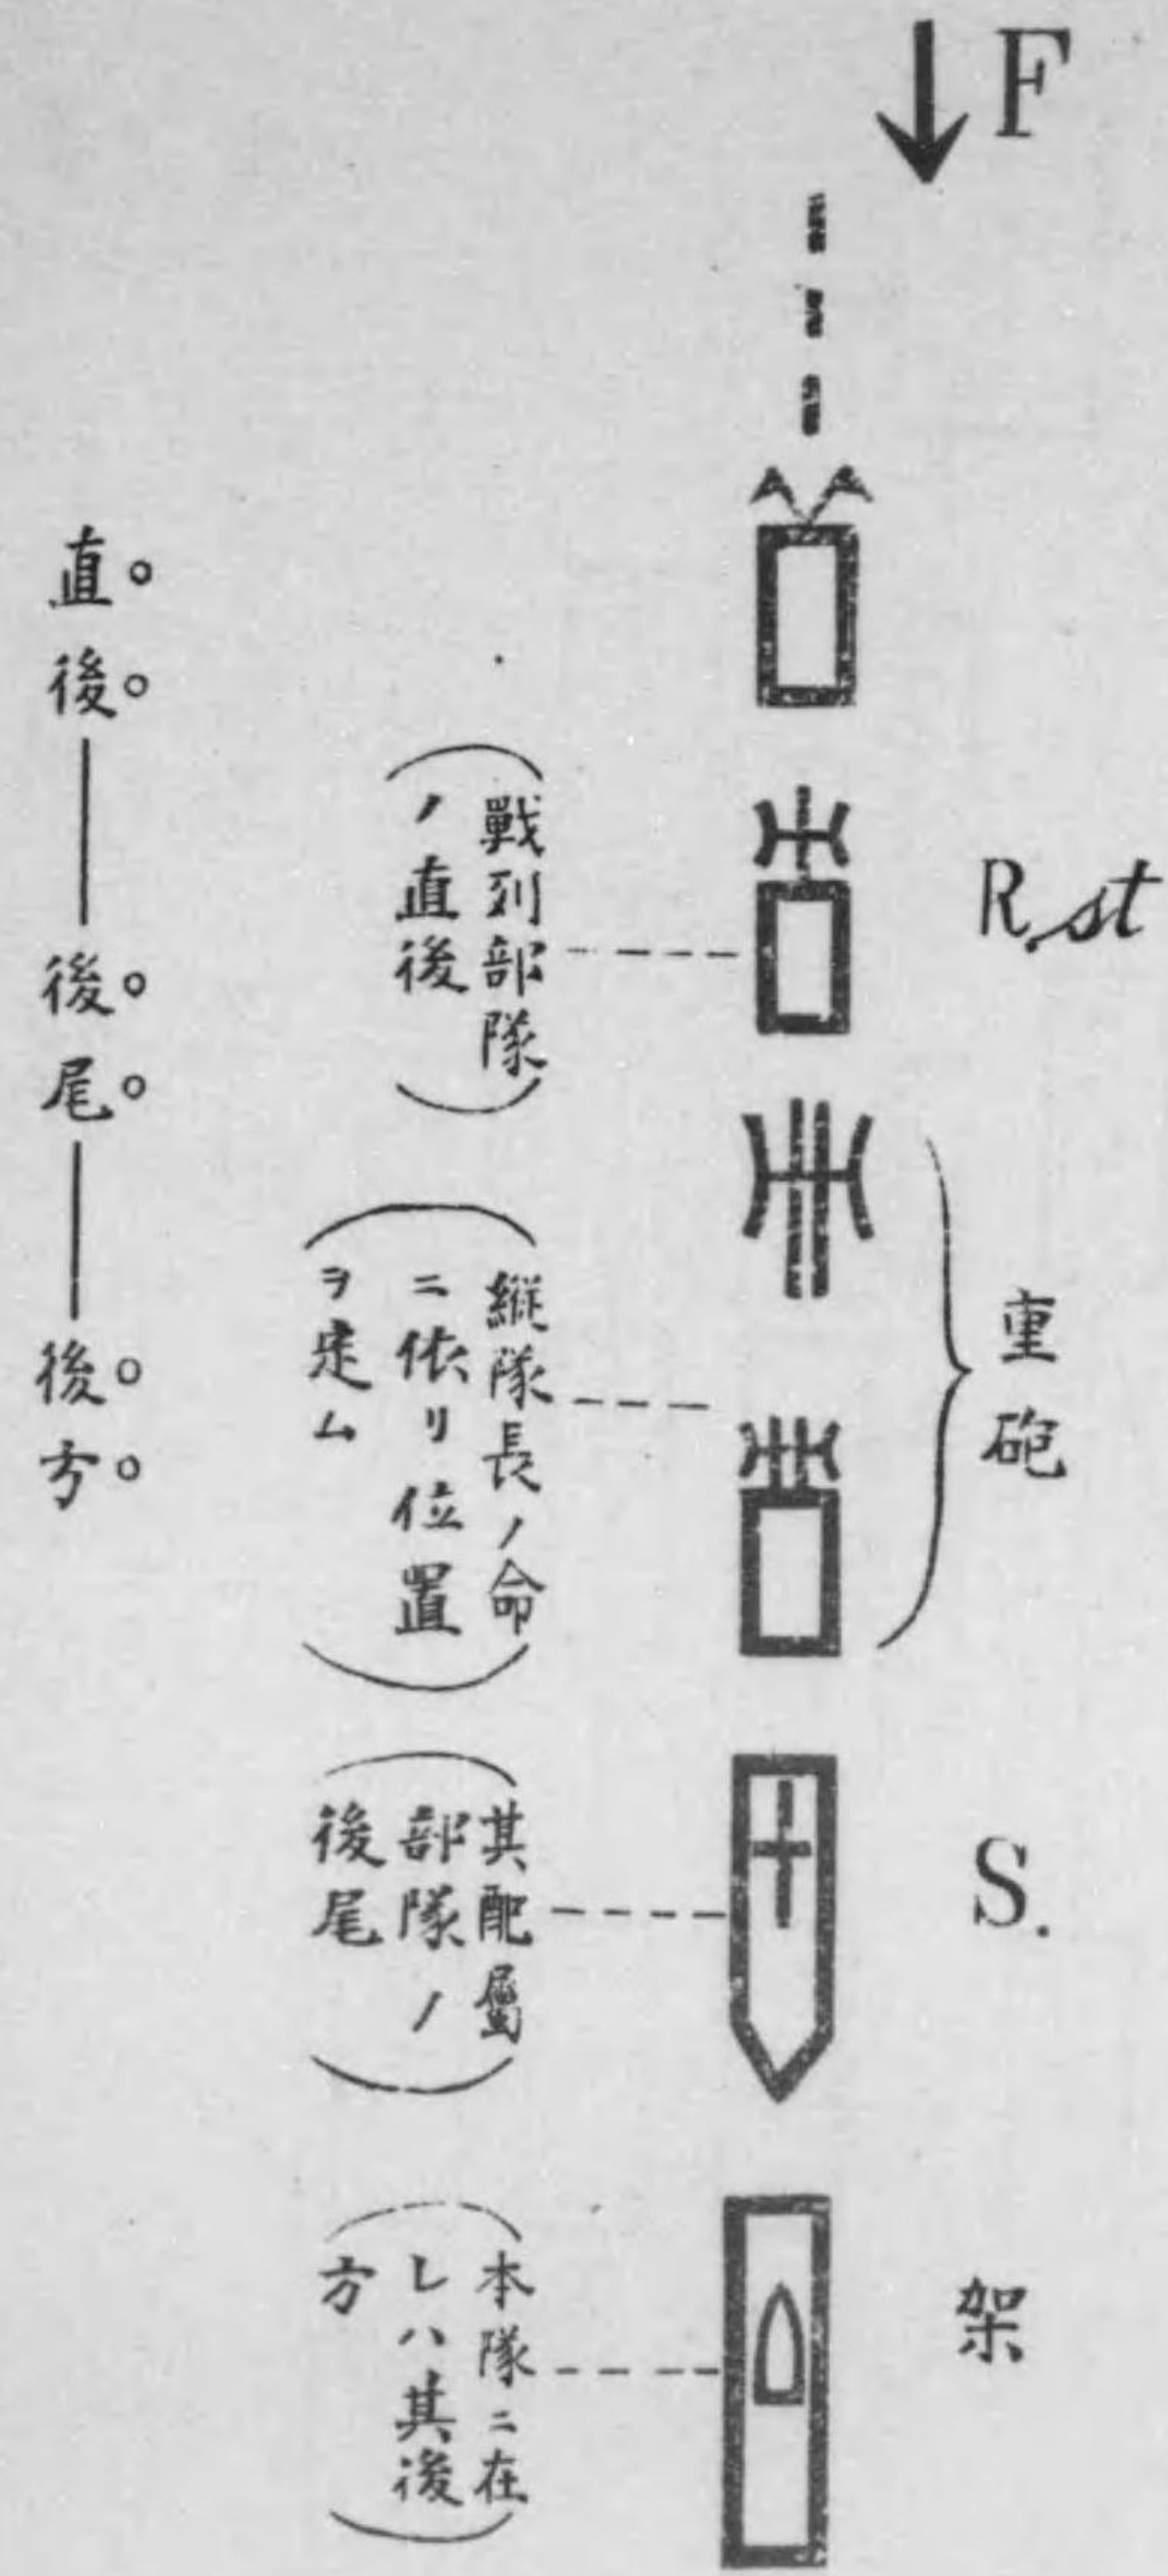 F
R.st
重砲
S.
架
(戰列部隊
ノ直後)
(縱隊長ノ命
ニ依リ位置
ヲ定ム)
(其配屬
部隊ノ
後尾)
(本隊ニ在
レハ其後
方)
直。後。——後。尾。——後。方。